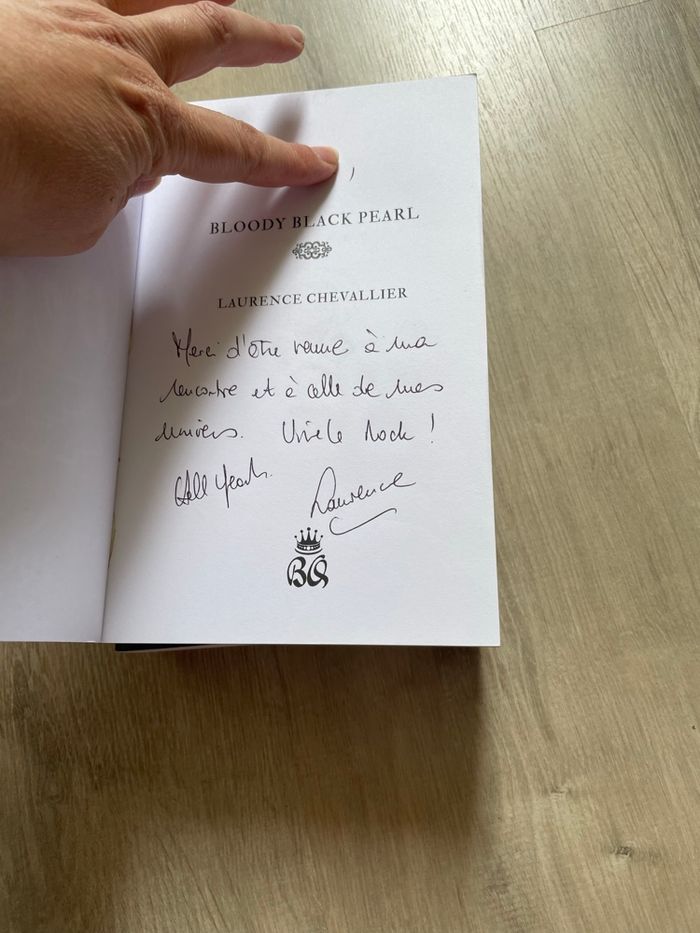 ,
BLOODY BLACK PEARL
LAURENCE CHEVALLIER
Merci d'être venue à ma
rencontre et à celle de mes
univers. Vive le Rock !
Hell Yeah.
Laurence
BQ